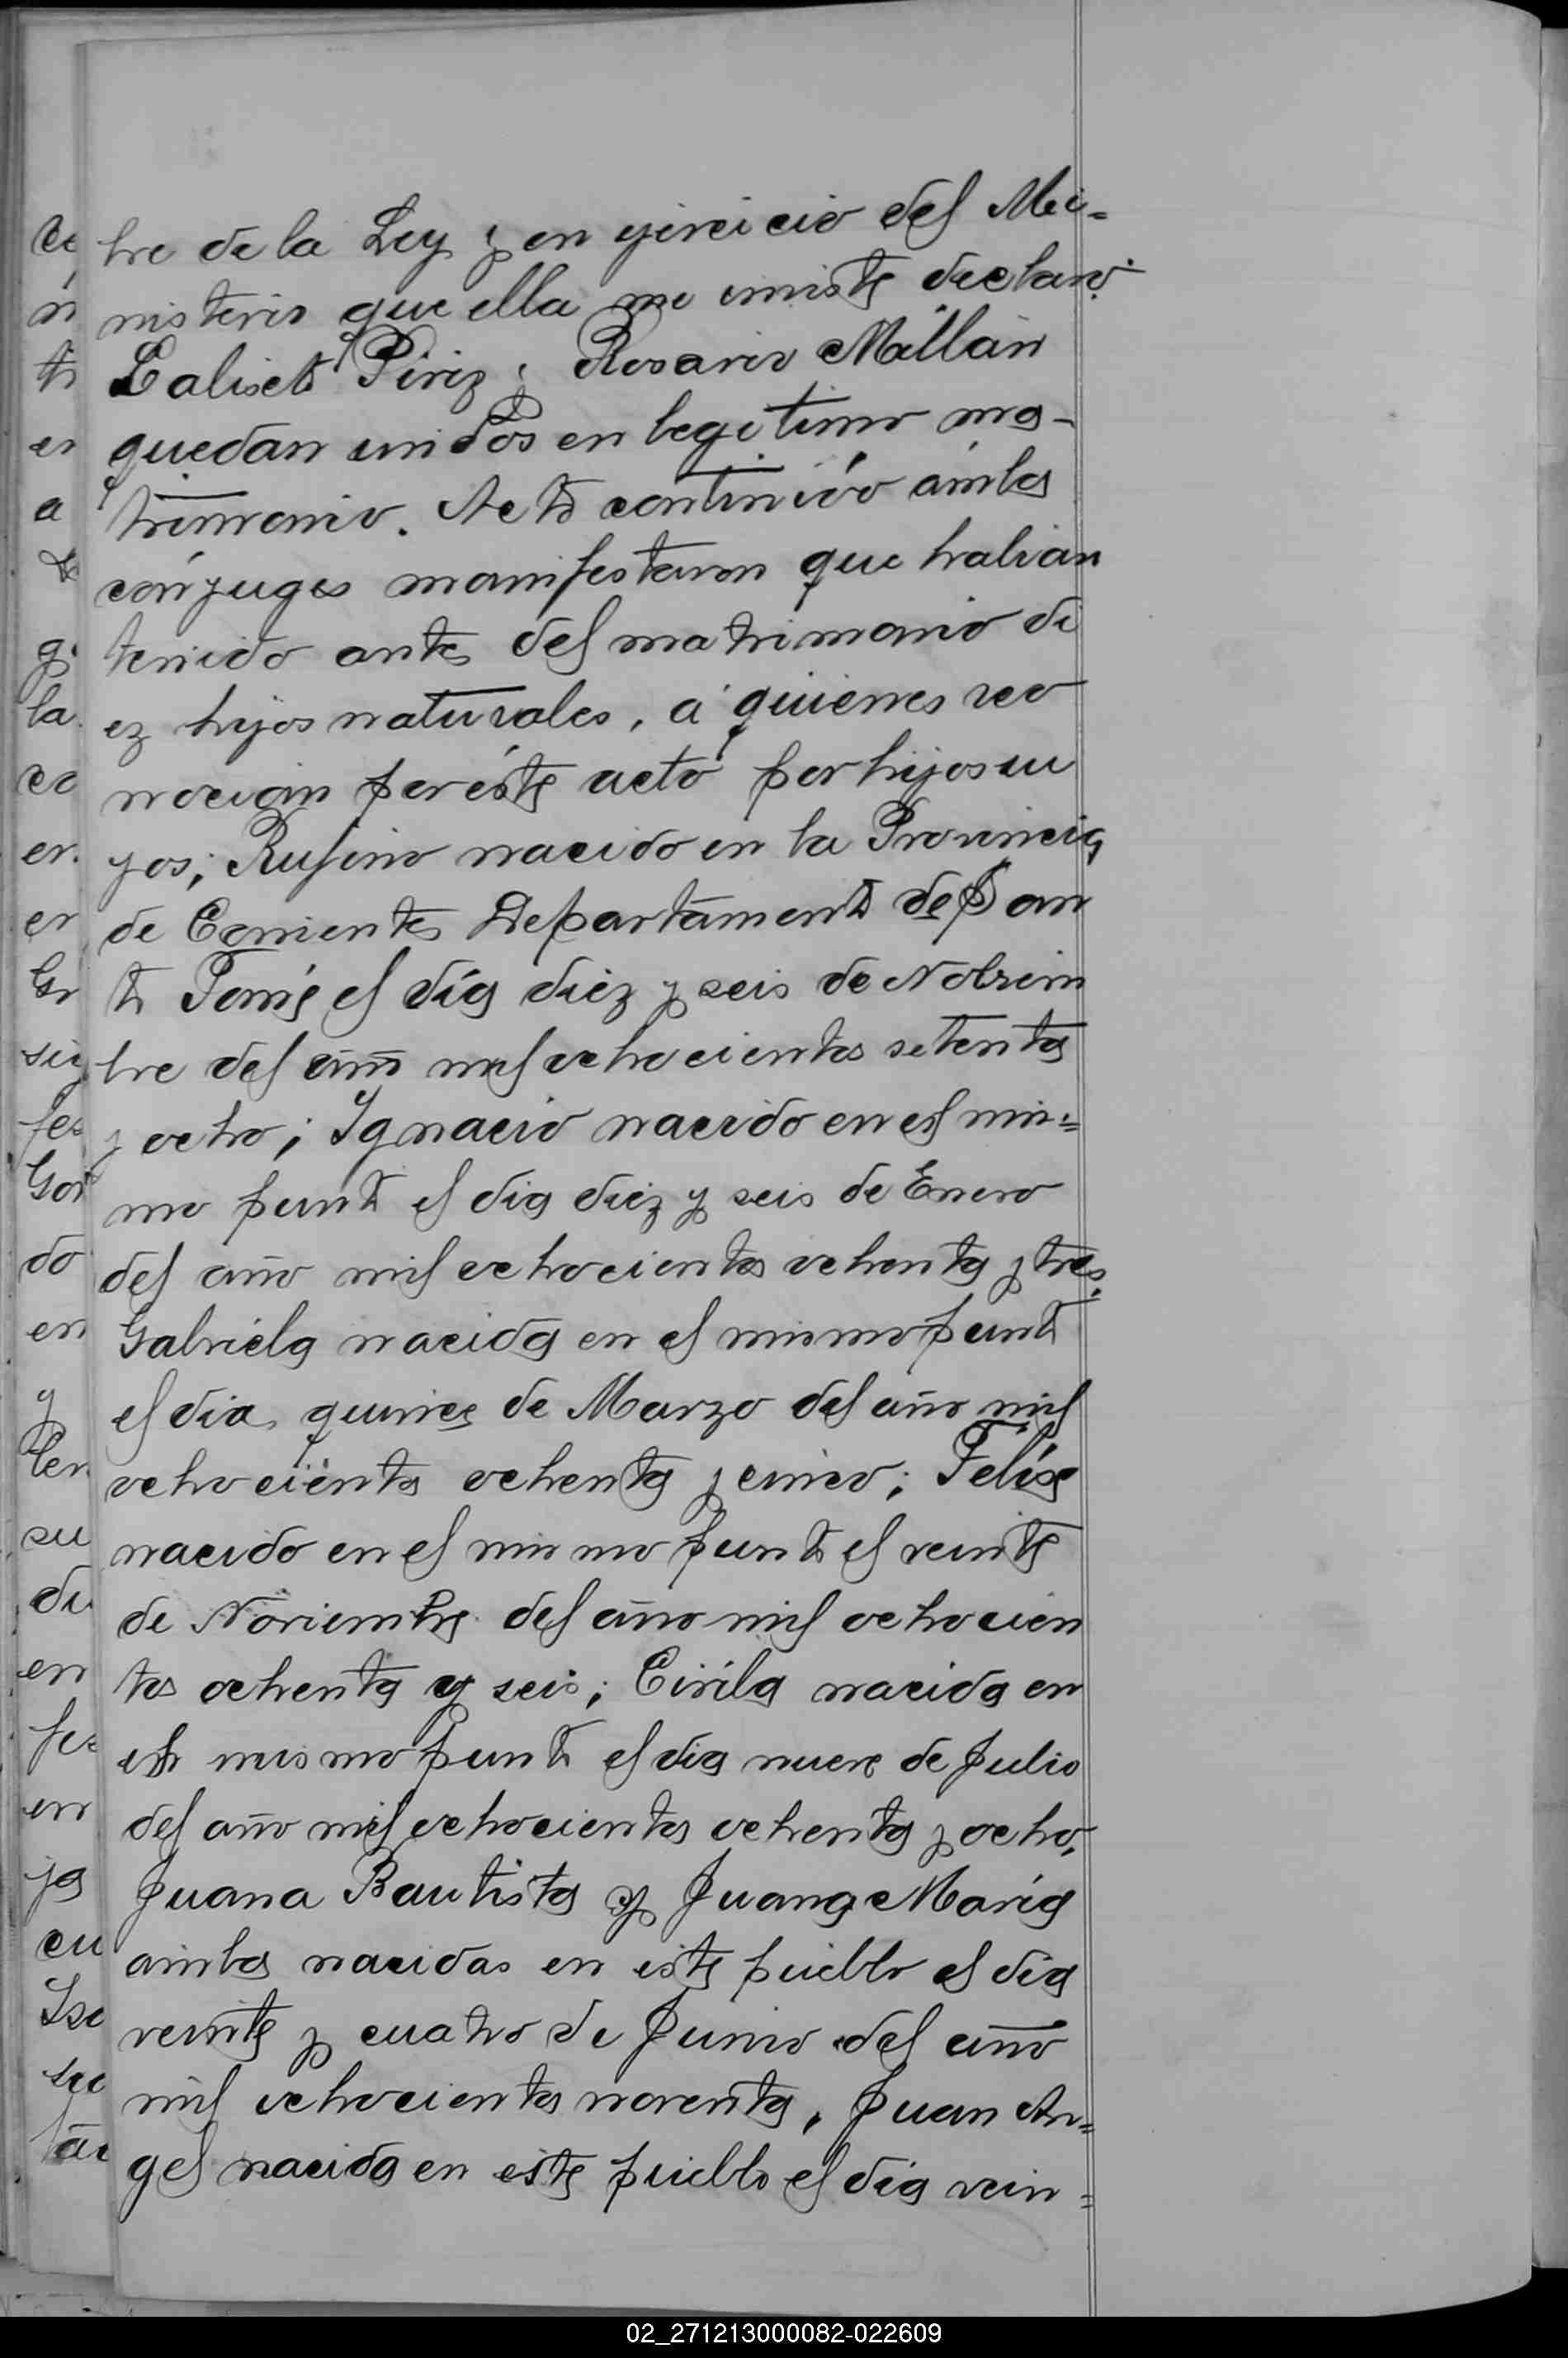 bre de la Ley y en ejercicio del Mi-
nisterio que ella me inviste declaro:
Calisto Pérez y Rosario Millán
quedan unidos en legitimo ma-
trimonio. Acto continúo ámbos
cónyuges manifestaron que habian
tenido antes del matrimonio di
ez hijos naturales, á quienes reco
nocian por éste acto por hijos su
yos; Rufino nacido en la Provincia
de Corrientes Departamento de San
to Tomé el día diez y seis de Nobiem
bre del año mil ochocientos setenta
y ocho; Ignacio nacido en el mis=
mo punto el dia diez y seis de Enero
del año mil ochocientos ochenta y tres;
Gabriela nacida en el mismo punto
el dia quince de Marzo del año mil
ochocientos ochenta y cinco; Felíse
nacido en el mismo punto el veinte
de Noviembre del año mil ochocien
tos ochenta y seis; Cirila nacida en
el mismo punto el dia nueve de Julio
del año mil ochocientos ochenta y ocho,
Juana Bautista y Juana María
ambas nacidas en este pueblo el día
veinte y cuatro de Junio del año
mil ochocientos noventa, Juan An=
gel nacido en este pueblo el día vein=
02_271213000082-022609